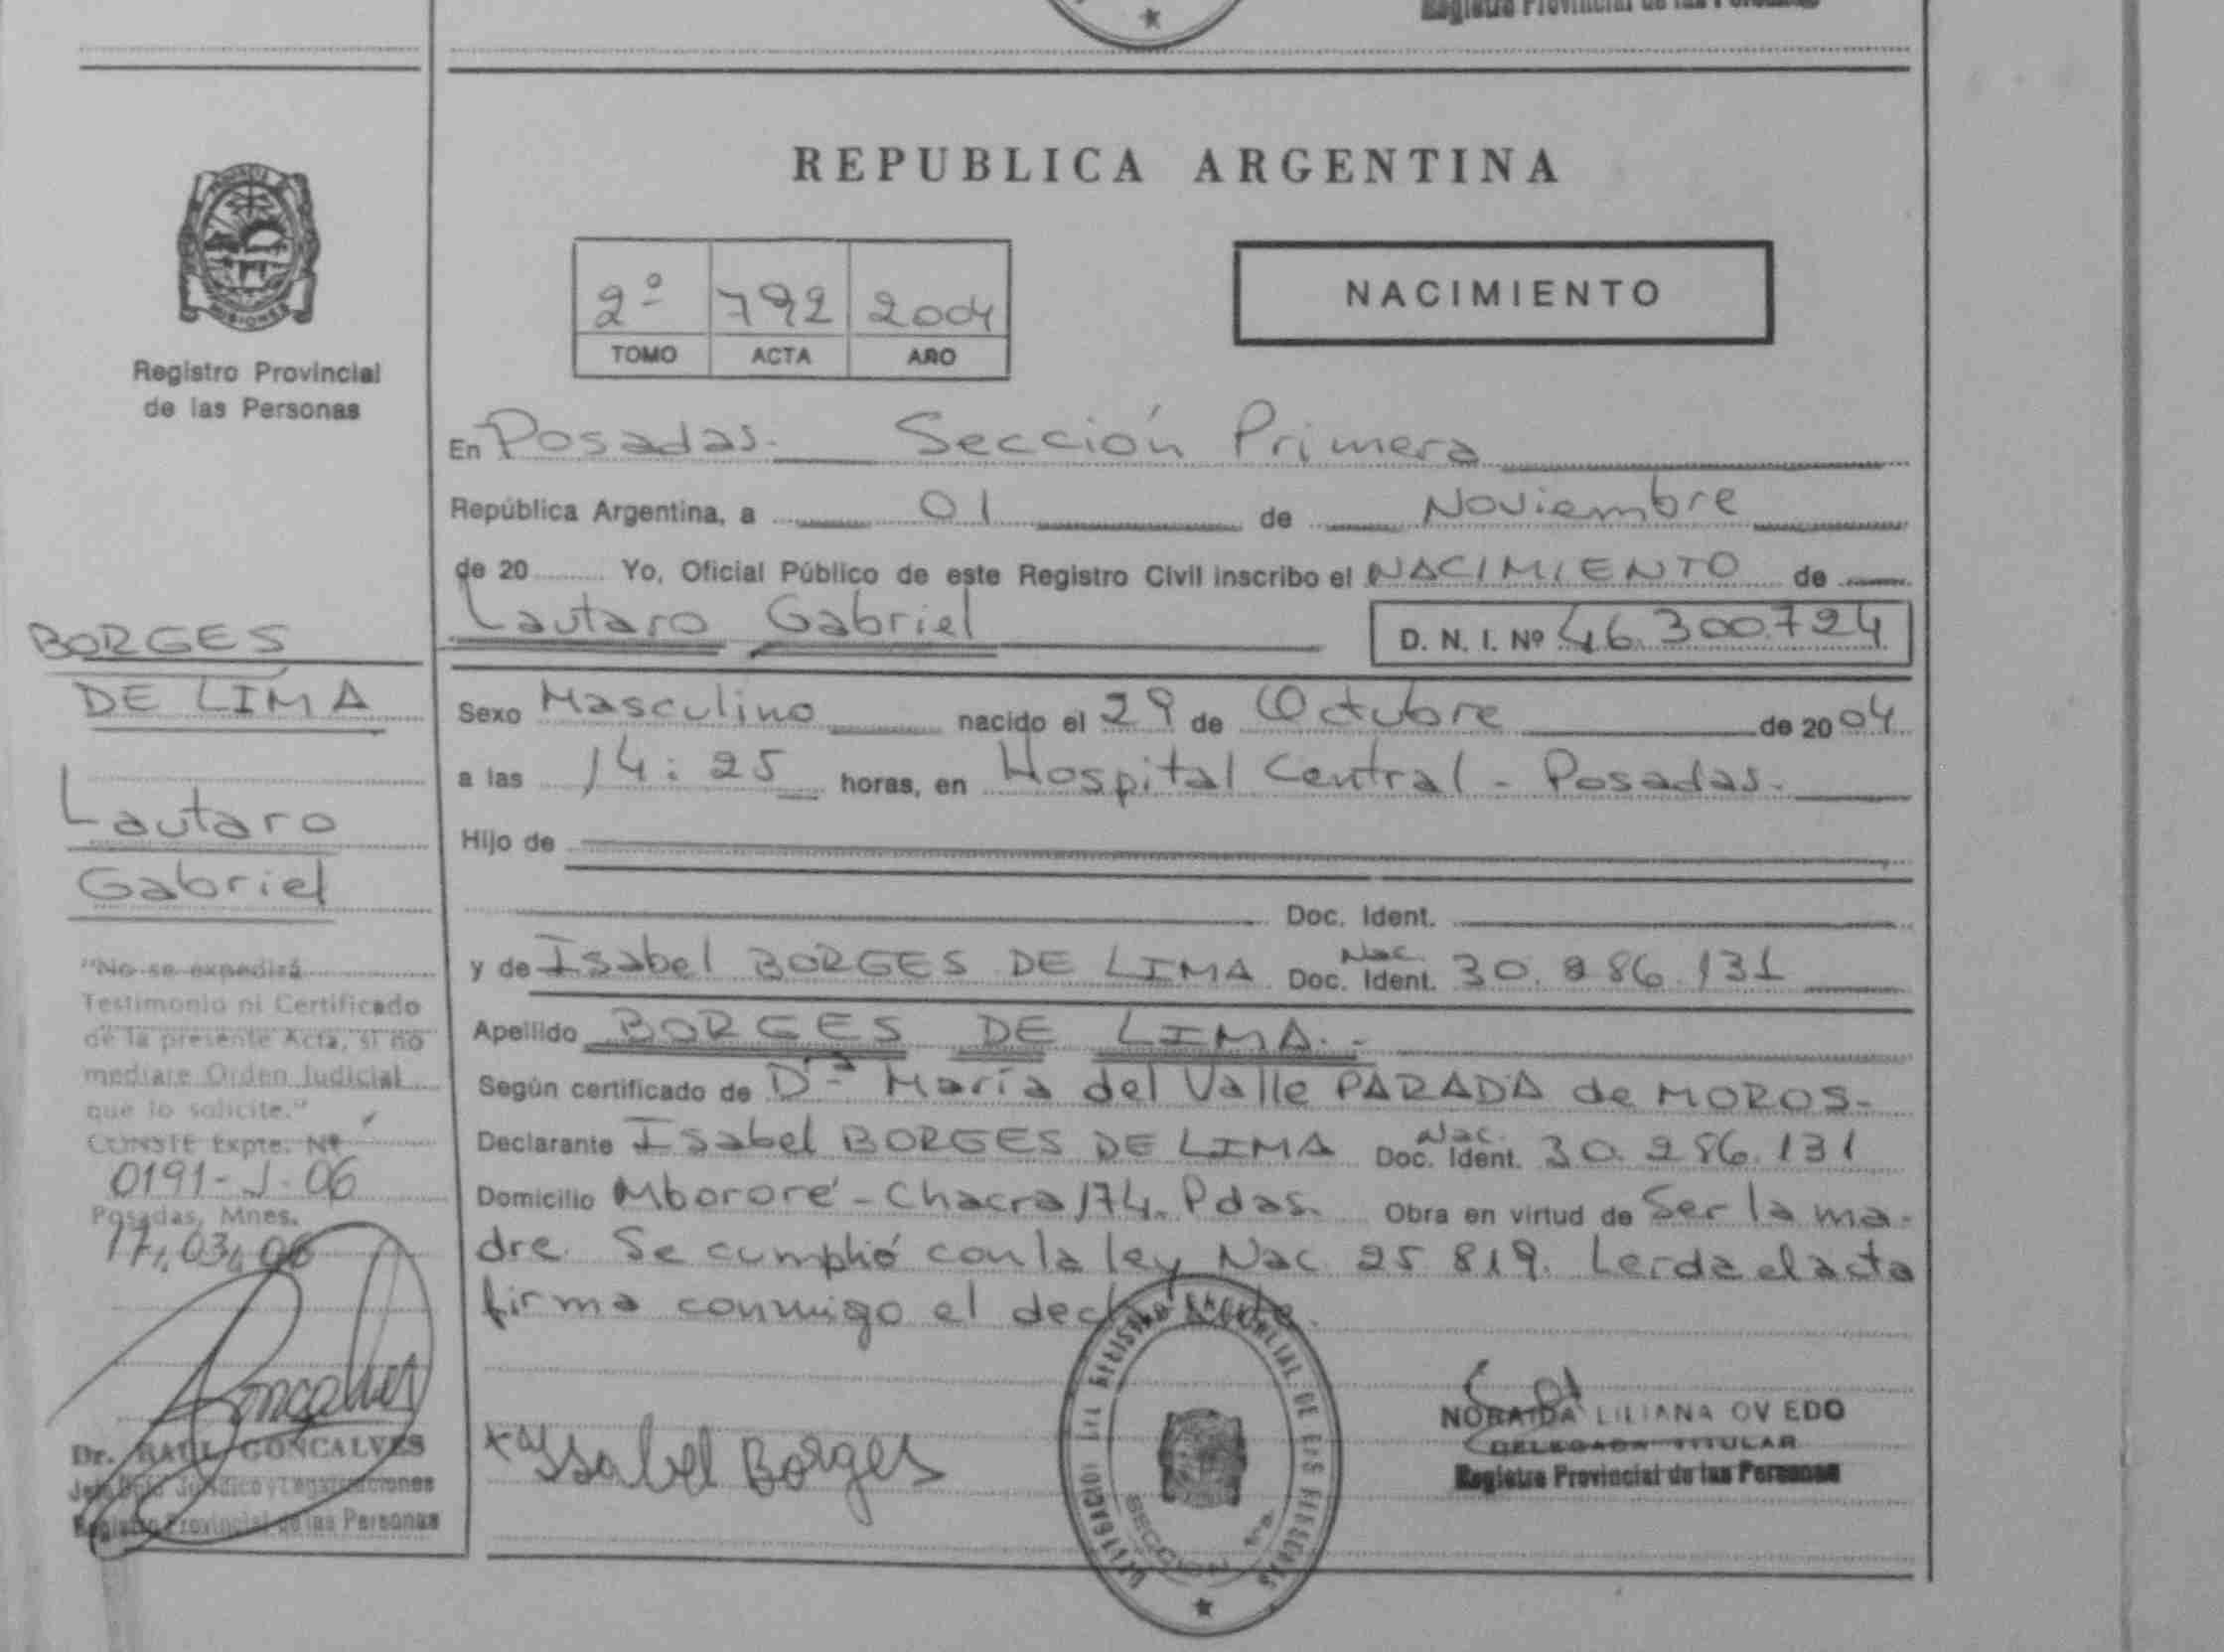 Registro Provincial de las Personas
REPUBLICA ARGENTINA
2º 792 2004
TOMO ACTA AÑO
NACIMIENTO
MISIONES
Registro Provincial
de las Personas
BORGES
DE LIMA
Lautaro
Gabriel
"No se expedirá
Testimonio ni Certificado
de la presente Acta, si no
mediare Orden Judicial
que lo solicite."
CONSTE Expte. Nº
0191-J-06
Posadas, Mnes.
17,03,06
Goncalves
Dr. RAUL GONCALVES
Registro Provincial de las Personas
En Posadas. Sección Primera
República Argentina, a 01 de Noviembre
de 20 Yo, Oficial Público de este Registro Civil inscribo el NACIMIENTO de
Lautaro Gabriel D. N. I. Nº 46.300.724
Sexo Masculino nacido el 29 de Octubre de 2004
a las 14:25 horas, en Hospital Central - Posadas.
Hijo de
Doc. Ident.
y de Isabel BORGES DE LIMA Doc. Nac. Ident. 30.286.131
Apellido BORGES DE LIMA.-
Según certificado de Dª María del Valle PARADA de MOROS.
Declarante Isabel BORGES DE LIMA Doc. Nac. Ident. 30.286.131
Domicilio Mbororé - Chacra 174. Pdas. Obra en virtud de Ser la ma-
dre. Se cumplió con la ley Nac 25 819. Leída el acta
firma conmigo el declarante.
Isabel Borges
REGISTRO PROVINCIAL DE LAS PERSONAS
SECCION 1ra.
NORAIDA LILIANA OVIEDO
DELEGADA TITULAR
Registro Provincial de las Personas